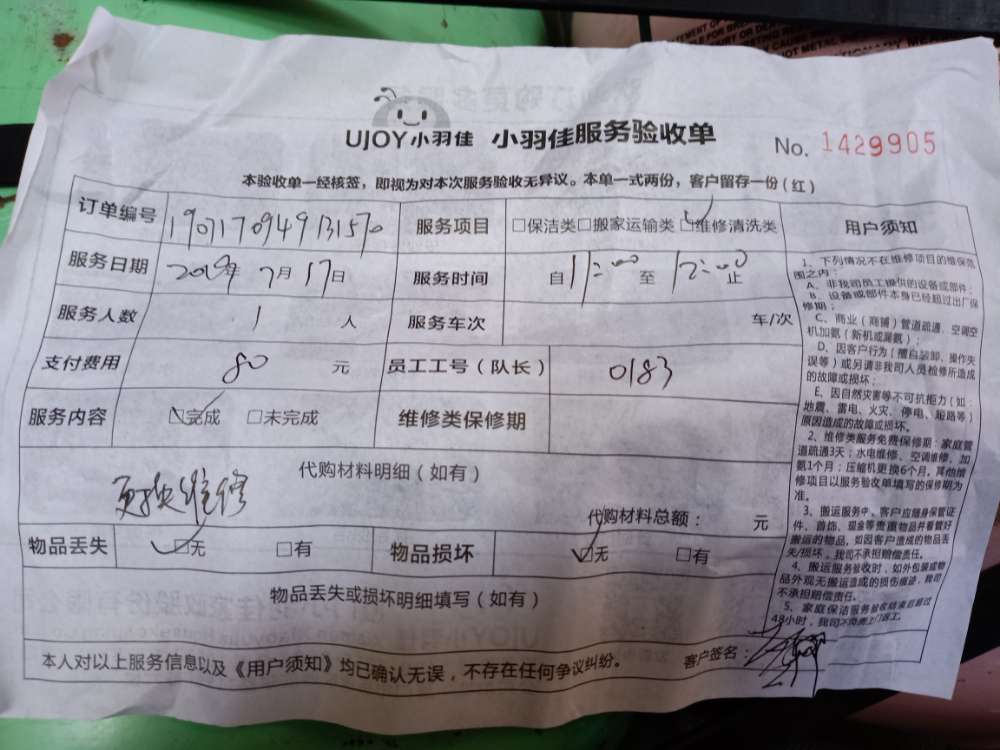 UJOY小羽佳 小羽佳服务验收单
No. 1429905
本验收单一经核签，即视为对本次服务验收无异议。本单一式两份，客户留存一份（红）
订单编号 服务项目 □保洁类□搬家运输类□维修清洗类
服务日期 2019年 7月 17日 服务时间 自 11:00 至 12:00 止
服务人数 1 人 服务车次 车/次
支付费用 80 元 员工工号（队长） 0183
服务内容 □完成 □未完成 维修类保修期
代购材料明细（如有）
更换维修
代购材料总额： 元
物品丢失 □无 □有 物品损坏 □无 □有
物品丢失或损坏明细填写（如有）
本人对以上服务信息以及《用户须知》均已确认无误，不存在任何争议纠纷。 客户签名：
用户须知
1、下列情况不在维修项目的维保范
围之内：
A、非我司员工提供的设备或部件；
B、设备或部件本身已经超过出厂保
修期；
C、商业（商铺）管道疏通、空调空
机加氨（新机或漏氨）；
D、因客户行为（擅自装卸、操作失
误等）或另请非我司人员检修所造成
的故障或损坏；
E、因自然灾害等不可抗拒力（如：
地震、雷电、火灾、停电、短路等）
原因造成的故障或损坏。
2、维修类服务免费保修期：家庭管
道疏通3天；水电维修、空调维修、加
氨1个月；压缩机更换6个月。其他维
修项目以服务验收单填写的保修期为
准。
3、搬运服务中、客户应随身保管证
件、首饰、现金等贵重物品并看管好
搬运的物品，如因客户造成的物品丢
失/损坏，我司不承担赔偿责任。
4、搬运服务验收时，如外包装或物
品外观无搬运造成的损伤痕迹，我司
不承担赔偿责任。
5、家庭保洁服务验收结束后超过
48小时，我司不负责上门返工。